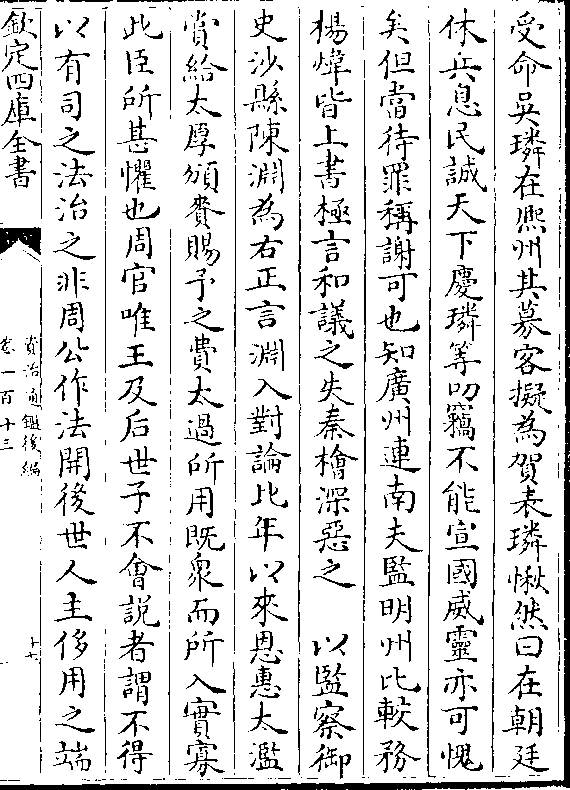 受命吳璘在熈州其幕客擬為賀表璘愀然曰在朝廷
休兵息民誠天下慶璘等叨竊不能宣國威靈亦可愧
矣但當待罪稱謝可也知廣州連南夫監明州比較務
楊煒皆上書極言和議之失秦檜深惡之　以監察御
史沙縣陳淵為右正言淵入對論比年以來恩惠太濫
賞給太厚頒賚賜予之費太過所用既衆而所入實寡
此臣所甚懼也周官唯王及后世子不會説者謂不得
以有司之法治之非周公作法開後世人主侈用之端
欽定四庫全書
資治通鑑後編
卷一百十三